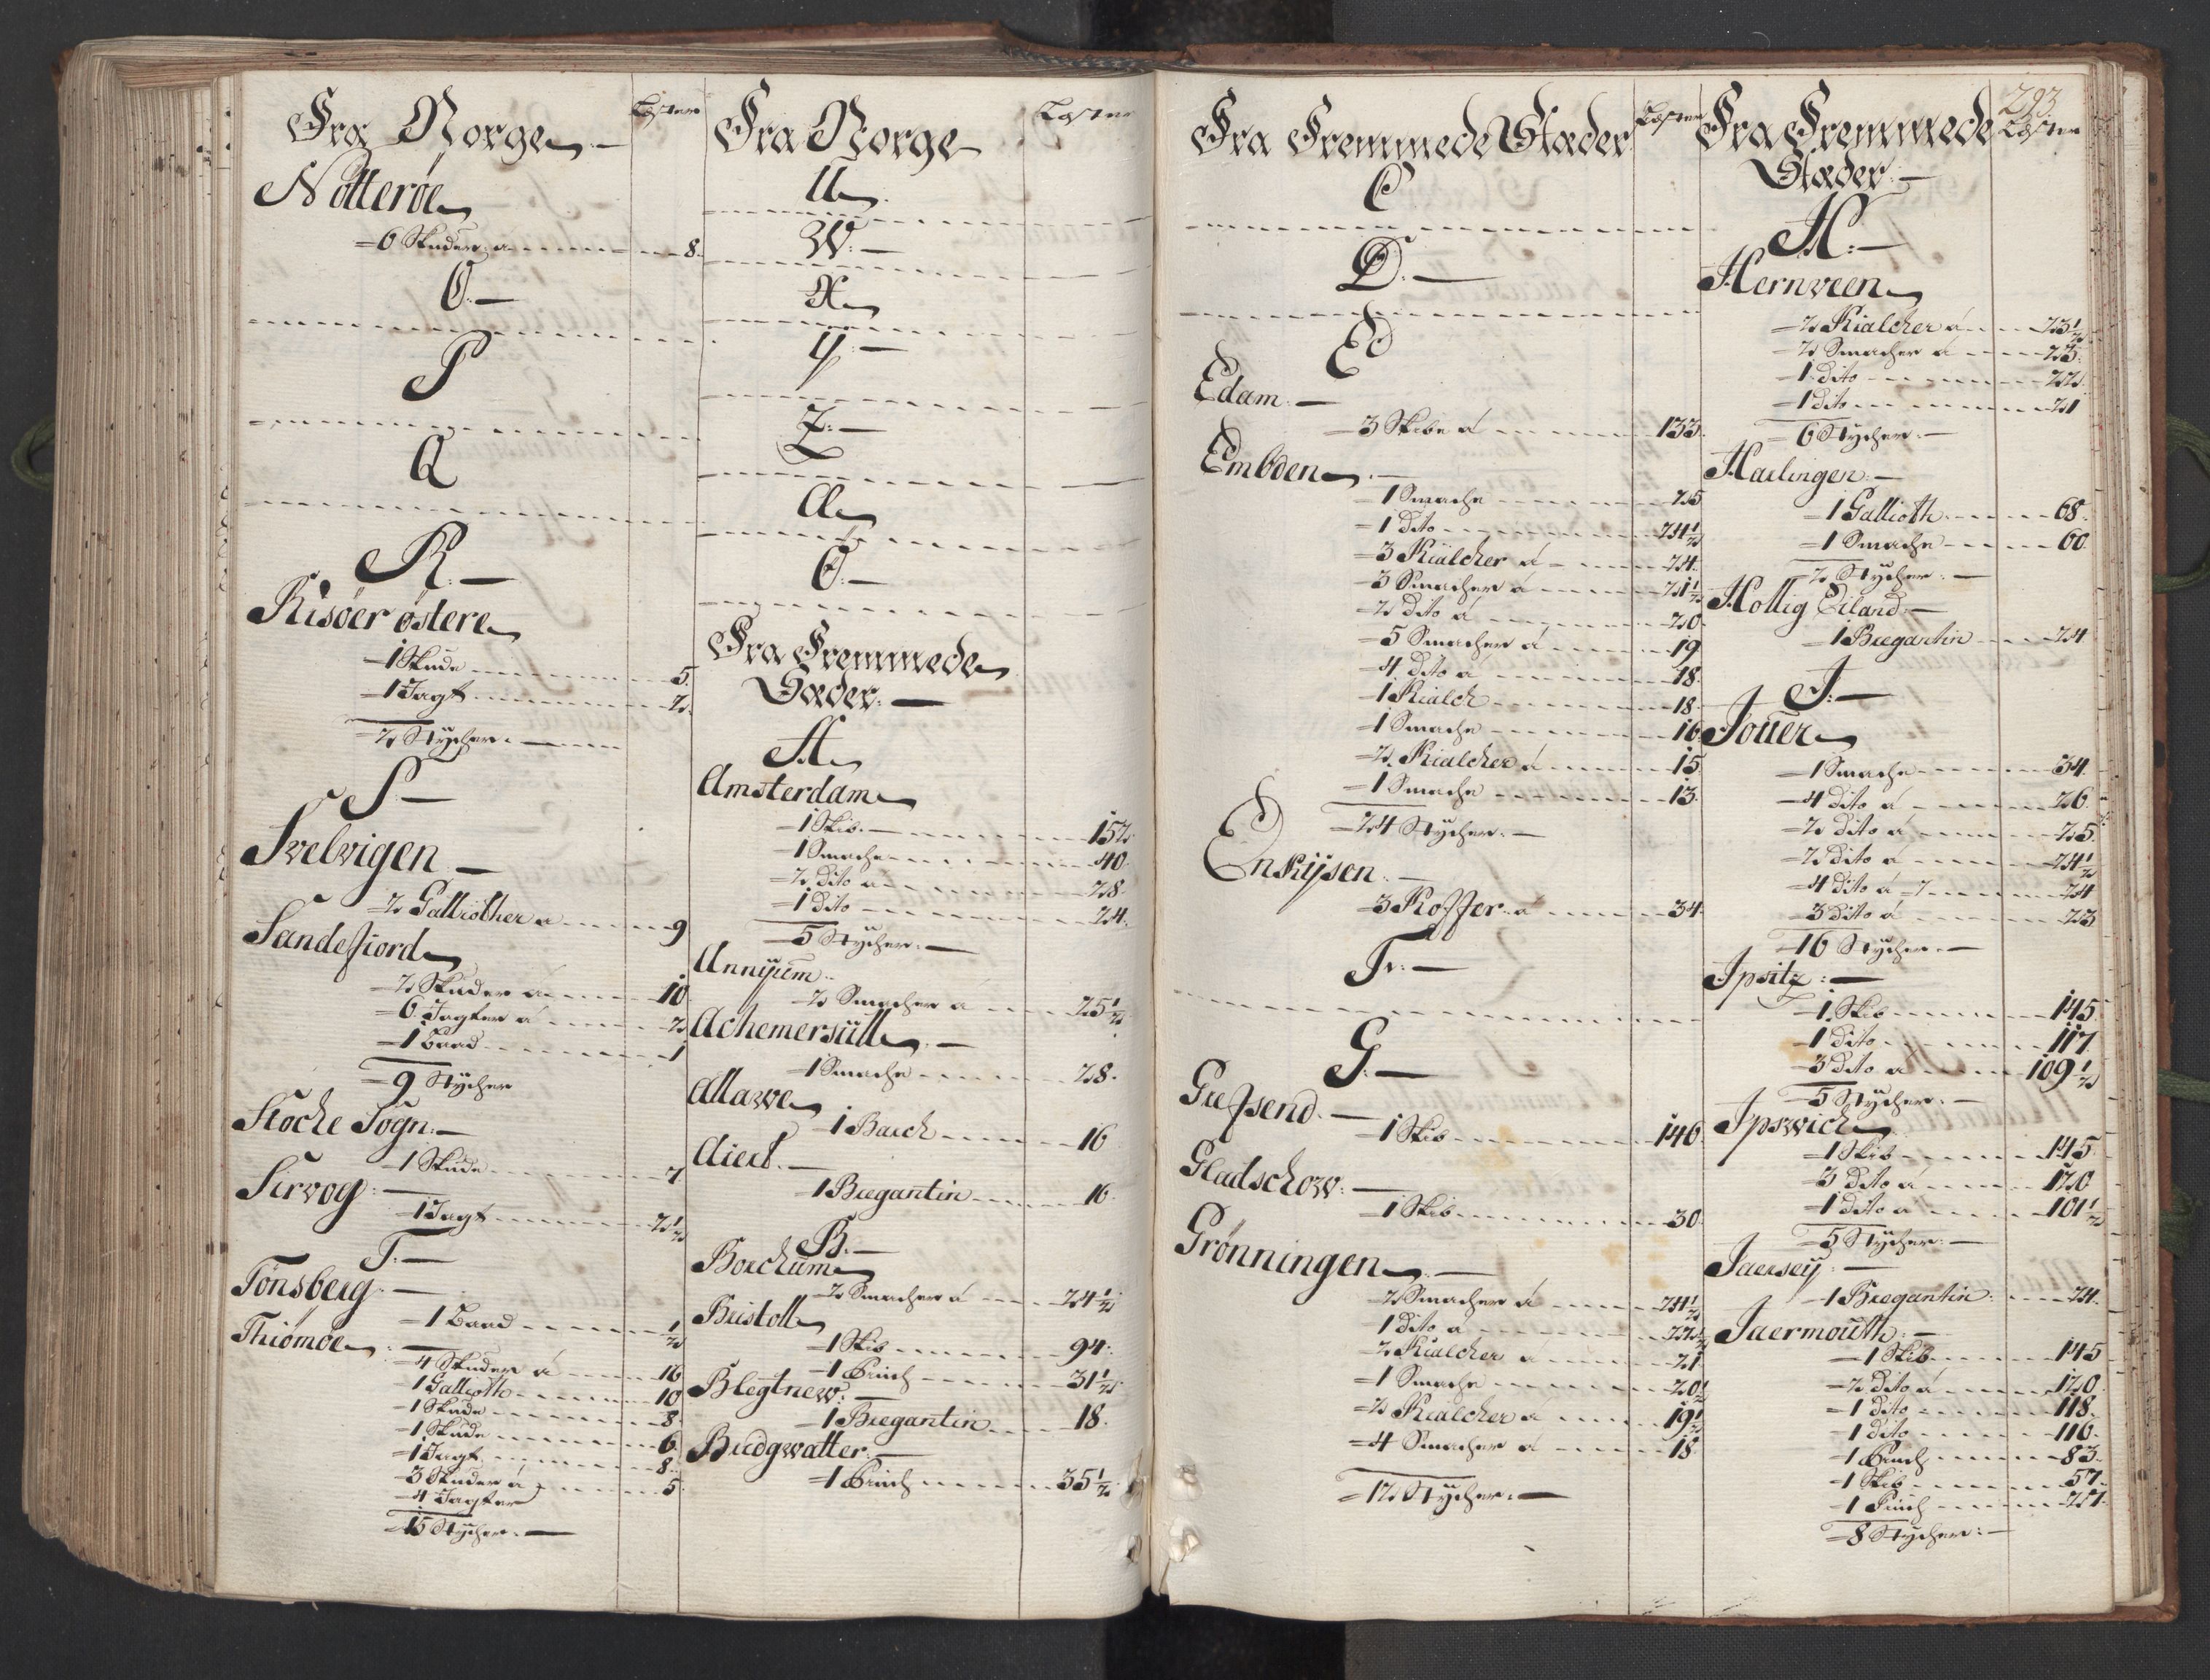 Fra Norge
Læster
Nötteröe
6 Skuder á 8.
O.
P
Q
R.
Risöer östere
1 Skude 5.
1 Jagt 2.
2 Stycher.
S.
Svelvigen
2 Galliother a 9
Sandefiord
2 Skuder á 10
6 Jagter á 2
1 Baad 1
9 Stycher
Stoche Sogn.
1 Skude 7
Sirvog:
1 Jagt 2½
T.
Tönsberg.
1 Baad ½
Thiömöe
4 Skuder á 16
1 Galliotte 10
1 Skude 8.
1 Skude 6.
1 Jagt 8.
3 Skuder á 5
4 Jagter
15 Stycher.
Fra Norge
Læster
U
W.
X
Y.
Z.
Æ
Ö.
Fra Fremmede
Stæder.
A
Amsterdam
1 Skib. 152
1 Smache 40
2 dito a 28.
1 dito 24.
5 Stycher.
Annyum.
2 Smacher á 25½
Achemersüll
1 Smache 28.
Allawe
1 Barch 16
Aiert.
1 Bregantin 16.
B.
Borchum
2 Smacher á 24½
Bristoll
1 Skib 94.
1 Brich 31½
Blegtnew:
1 Bregantin 18.
Bridgwatter.
1 Brich 35½
Fra Fremmede Stæder
Læster
C
D.
E
Edam.
3 Skibe á 133.
Embden
1 Smache 25
1 dito 24½
3 Kialcher á 24.
3 Smacher á 21½
2 dito á 20
5 Smacher á 19
4 dito á 18.
1 Kialch 18.
1 Smache 16
2 Kialcher á 15.
1 Smache 13.
24 Stycher.
Enkysen.
3 Koffer á 34
F.
G.
Grefsend.
1 Skib 146
Gladschow.
1 Skib 30
Grönningen
2 Smacher á 24½
1 dito a 22½
2 Kialcher á 21
1 Smache 20½
2 Kialcher á 19½
4 Smacher á 18
12 Stycher.
293
Fra Fremmede
Læster
Stæder.
H.
Hernveen
2 Kialcher á 23½
2 Smacher á 23.
1 dito 22.
1 dito 21
6 Stycher.
Harlingen.
1 Galliotte 68.
1 Smache 60.
2 Stycher.
Hollig Eiland.
1 Bregantin 24
J.
Jouer
1 Smache 34.
4 dito á 26.
2 dito á 25.
2 dito á 24½
4 dito á 24
3 dito á 23
16 Stycher.
Jpsitz:
1 Skib 145.
1 dito 117.
3 dito a 109½
5 Stycher.
Jpswich
1 Skib 145.
3 dito á 120
1 dito a 101½
5 Stycher.
Jaersey.
1 Bregantin. 24.
Jaermouth:
1 Skib 145
2 dito á 120.
1 dito 118.
1 dito 116.
1 Brich 83.
1 Skib 57.
1 Brich 27.
8 Stycher: